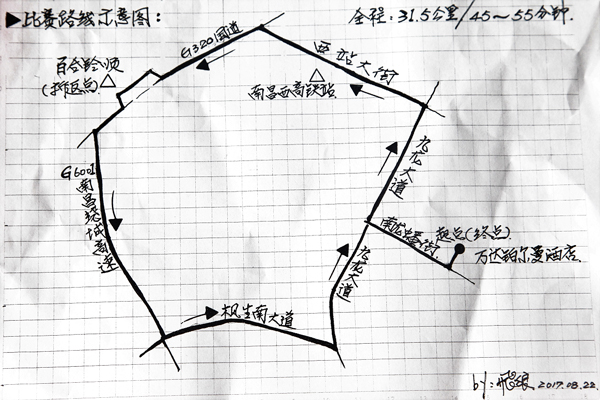 ▶比赛路线示意图:
全程:31.5公里/45~55分钟.
G320国道
西站大街
百合岭顺
(折返点)
南昌西高铁站
九龙大道
G6001南昌绕城高速
南龙蟠街
起点(终点)
万达铂尔曼酒店
九龙大道
枫生南大道
by:飛狼 2017.08.22.